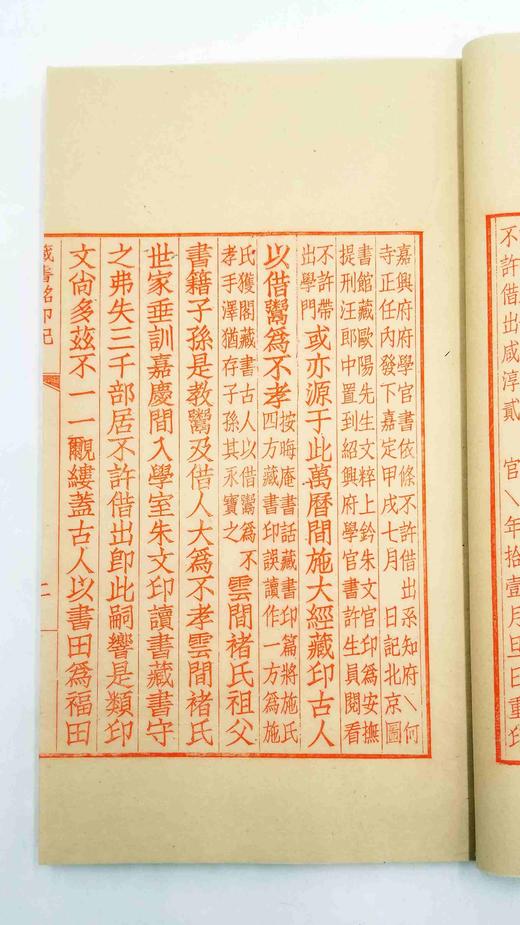 不許借出咸淳貳 官\年拾壹月旦日重印
嘉興府府學官書依條不許借出系知府\何
寺正任內發下嘉定甲戌七月 日記北京圖
書館藏歐陽先生文粹上鈐朱文官印爲安撫
提刑汪郎中置到紹興府學官書許生員閱看
不許帶
出學門
或亦源于此萬曆間施大經藏印古人
以借鬻爲不孝
按晦庵書話藏書印篇將施氏
四方藏書印誤讀作一方爲施
氏獲閣藏書古人以借鬻爲不
孝手澤猶存子孫其永寶之
雲間褚氏祖父
書籍子孫是教鬻及借人大爲不孝雲間褚氏
世家垂訓嘉慶間入學室朱文印讀書藏書守
之弗失三千部居不許借出卽此嗣響是類印
文尙多茲不一一覼縷蓋古人以書田爲福田
藏書銘印記
二